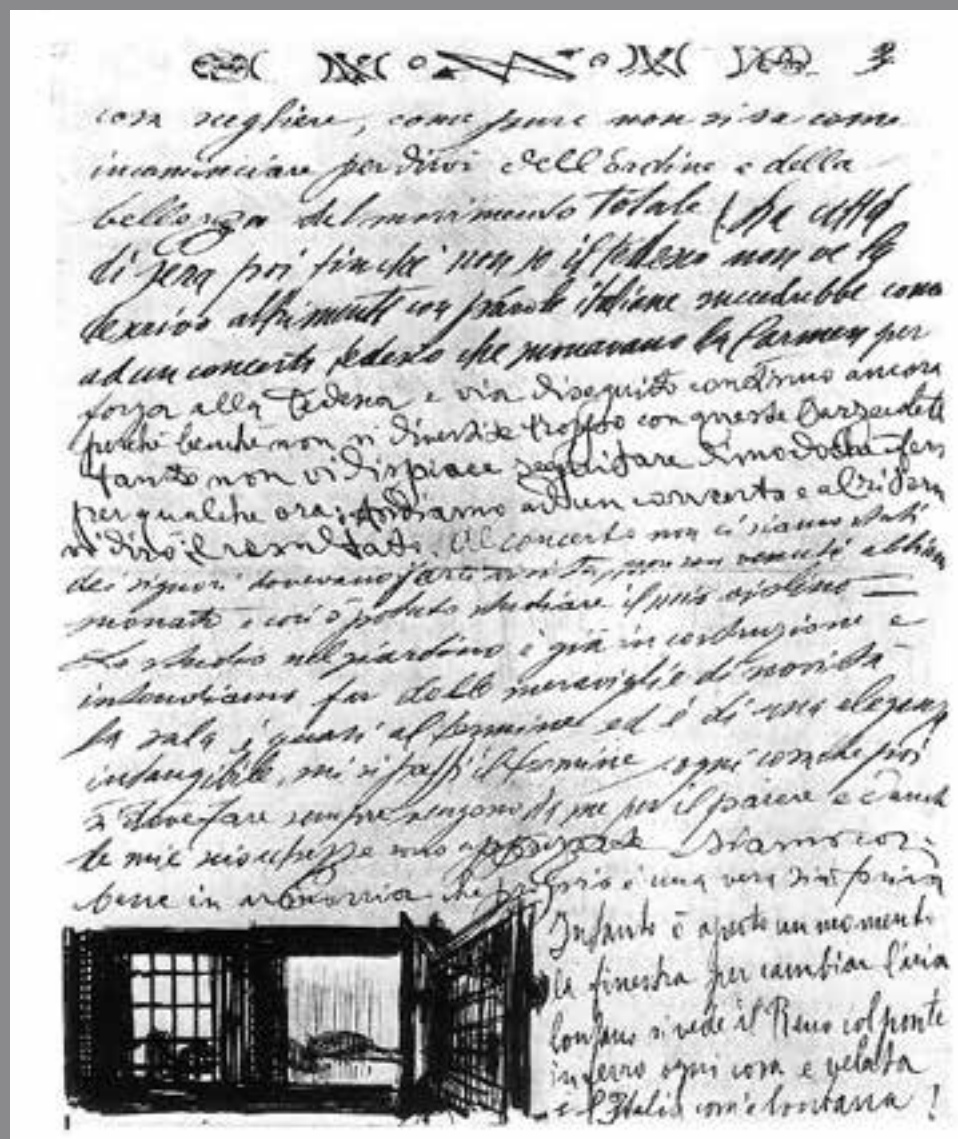 3
cosa scegliere, come pure non si sa come
incominciare per dirvi dell'ordine e della
bellezza del movimento totale (
di sera poi finché non so il tedesco non ve la
descrivo altrimenti con parole italiane succedrebbe come
ad un concerto tedesco che suonavano la Carmen per
forza alla tedesca e via diseguito continuo ancora
perché benché non vi divertite troppo con queste barzellette
tanto non vi dispiace seguitare dimodoché
per qualche ora; andiamo ad un concerto e
vi dirò il resultato. Al concerto non ci siamo stati
dei signori dovevano farci visita, non son venuti abbiam
suonato e così ò potuto studiare il mio violino =
Lo studio nel giardino è già in costruzione e
intendiamo far delle meraviglie di novità
la sala è quasi al termine ed è di una eleganza
intangibile, mi si passi il termine, ogni cosa che poi
si deve fare sempre vengono da me per il parere e
le mie sono Stiamo così
bene in armonia che proprio è una vera sinfonia
Intanto ò aperto un momento
la finestra per cambiar l'aria
lontano si vede il Reno col ponte
in ferro ogni cosa è velata
e l'Italia com'è lontana !